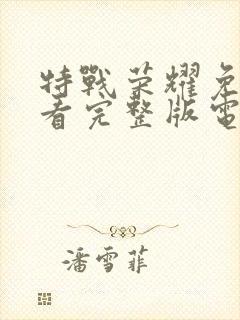 特戰荣耀免
看完整版電
潘雪菲